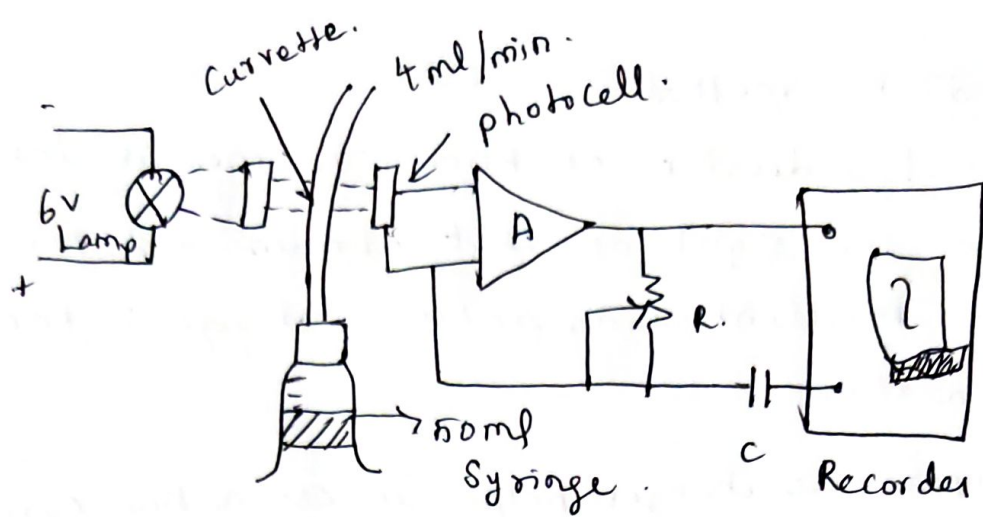 Curvette.
4ml/min.
photocell.
-
6V
Lamp
+
A
R.
50ml
Syringe.
C
Recorder